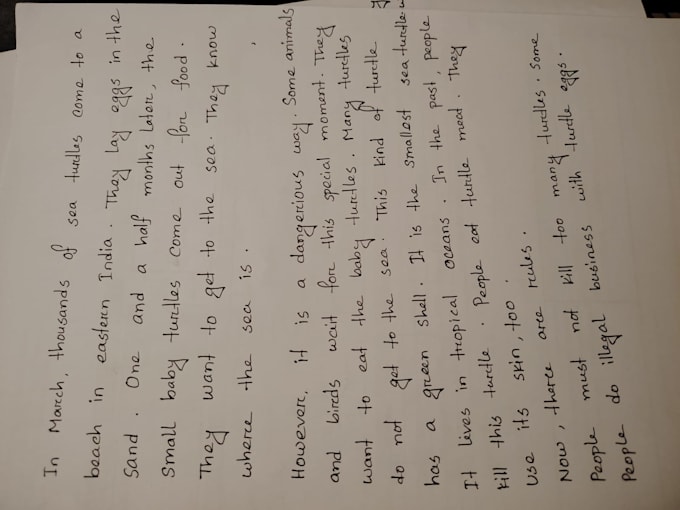 In March, thousands of sea turtles come to a
beach in eastern India. They lay eggs in the
Sand. One and a half months later, the
Small baby turtles come out for food.
They want to get to the sea. They know
where the sea is.
However, it is a dangerious way. Some animals
and birds wait for this special moment. They
want to eat the baby turtles. Many turtles
do not get to the sea. This kind of turtle
has a green shell. It is the smallest sea turtle
It lives in tropical oceans. In the past, people
kill this turtle. People eat turtle mead. They
use its skin, too.
Now, there are rules.
People must not kill too many turtles. Some
People do illegal business with turtle eggs.